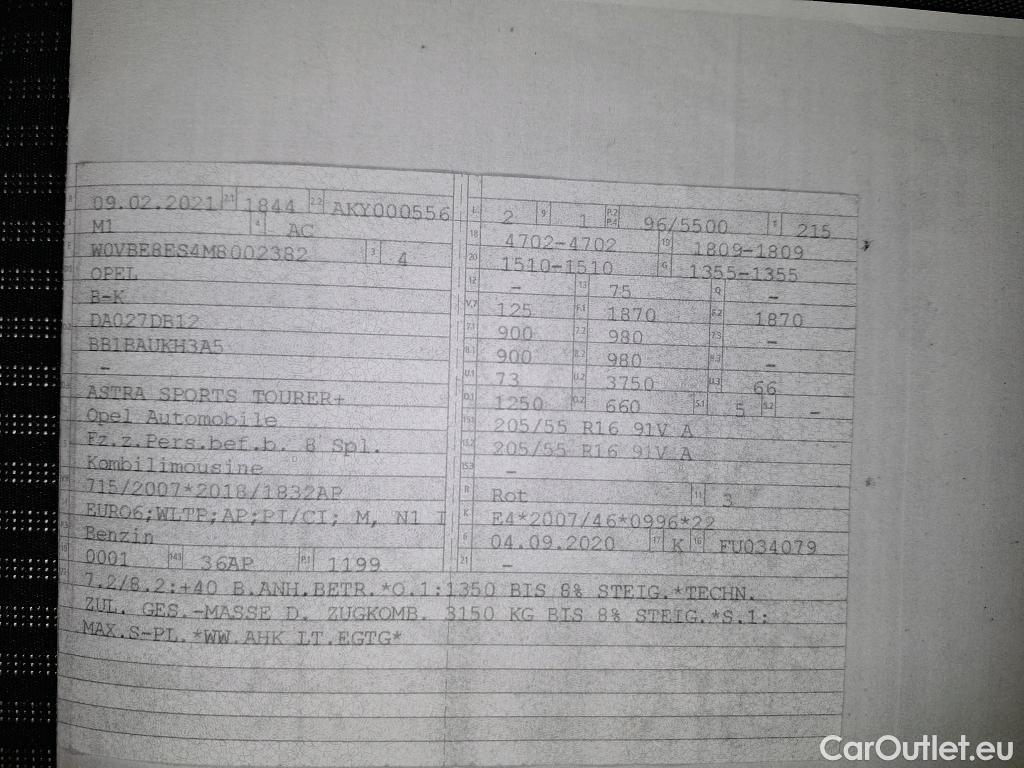 09.02.2021 2.1 1844 2.2 AKY000556 L 2 9 1 P.2 P.4 96/5500 T 215
M1 4 AC 18 4702-4702 19 1809-1809
W0VBE8ES4M8002382 3 4 20 1510-1510 G 1355-1355
OPEL 12 - 13 75 Q -
B-K V.7 125 F.1 1870 F.2 1870
DA027DB12 7.1 900 7.2 980 7.3 -
BB1BAUKH3A5 8.1 900 8.2 980 8.3 -
- U.1 73 U.2 3750 U.3 66
ASTRA SPORTS TOURER+ O.1 1250 O.2 660 S.1 5 S.2 -
Opel Automobile 15.1 205/55 R16 91V A
Fz.z.Pers.bef.b. 8 Spl. 15.2 205/55 R16 91V A
Kombilimousine 15.3 -
715/2007*2018/1832AP R Rot 11 3
EURO6;WLTP;AP;PI/CI; M, N1 I K E4*2007/46*0996*22
Benzin 6 04.09.2020 17 K 16 FU034079
0001 14.1 36AP P.1 1199 21 -
7.2/8.2:+40 B.ANH.BETR.*O.1:1350 BIS 8% STEIG.*TECHN.
ZUL. GES.-MASSE D. ZUGKOMB. 3150 KG BIS 8% STEIG.*S.1:
MAX.S-PL.*WW.AHK LT.EGTG*
CarOutlet.eu